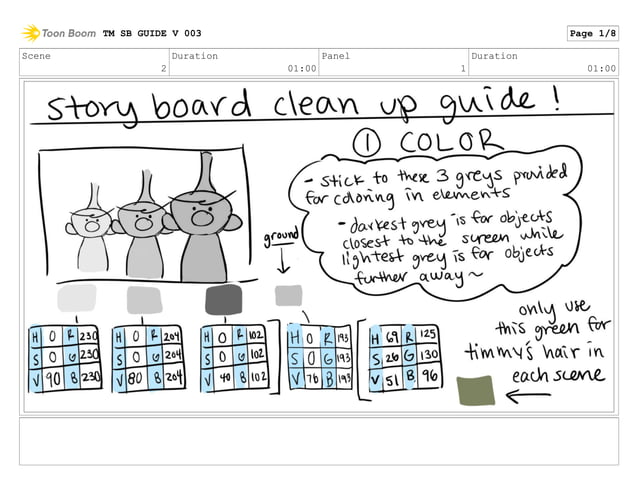 Toon Boom TM SB GUIDE V 003 Page 1/8
Scene Duration Panel Duration
2 01:00 1 01:00
story board clean up guide !
① COLOR
- stick to these 3 greys provided
for coloring in elements
- darkest grey is for objects
closest to the screen while
lightest grey is for objects
further away ~
ground
only use
this green for
timmy's hair in
each scene
H 0 R 230
S 0 G 230
V 90 B 230
H 0 R 204
S 0 G 204
V 80 B 204
H 0 R 102
S 0 G 102
V 40 B 102
H 0 R 193
S 0 G 193
V 76 B 193
H 69 R 125
S 26 G 130
V 51 B 96